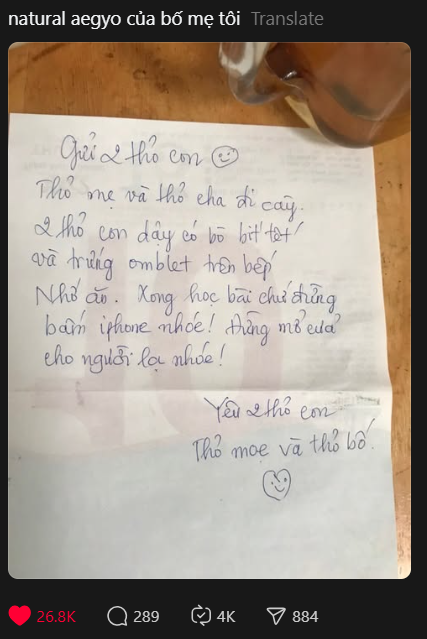 natural aegyo của bố mẹ tôi Translate
Gửi 2 thỏ con
Thỏ mẹ và thỏ cha đi cày.
2 thỏ con dậy có bò bít tết
và trứng omblet trên bếp
Nhớ ăn. Xong học bài chứ đừng
bấm iphone nhóe! Đừng mở cửa
cho người lạ nhóe!
Yêu 2 thỏ con
Thỏ moẹ và thỏ bố.
26.8K 289 4K 884